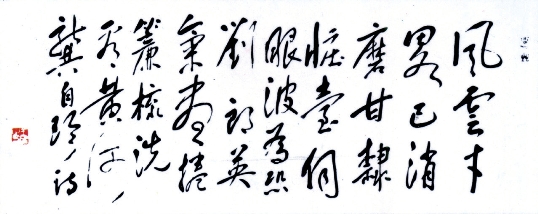 風雲才
畧已消
磨甘隸
妝臺伺
眼波為恐
劉郎英
氣盡捲
簾梳洗
看黃河
龔自珍詩